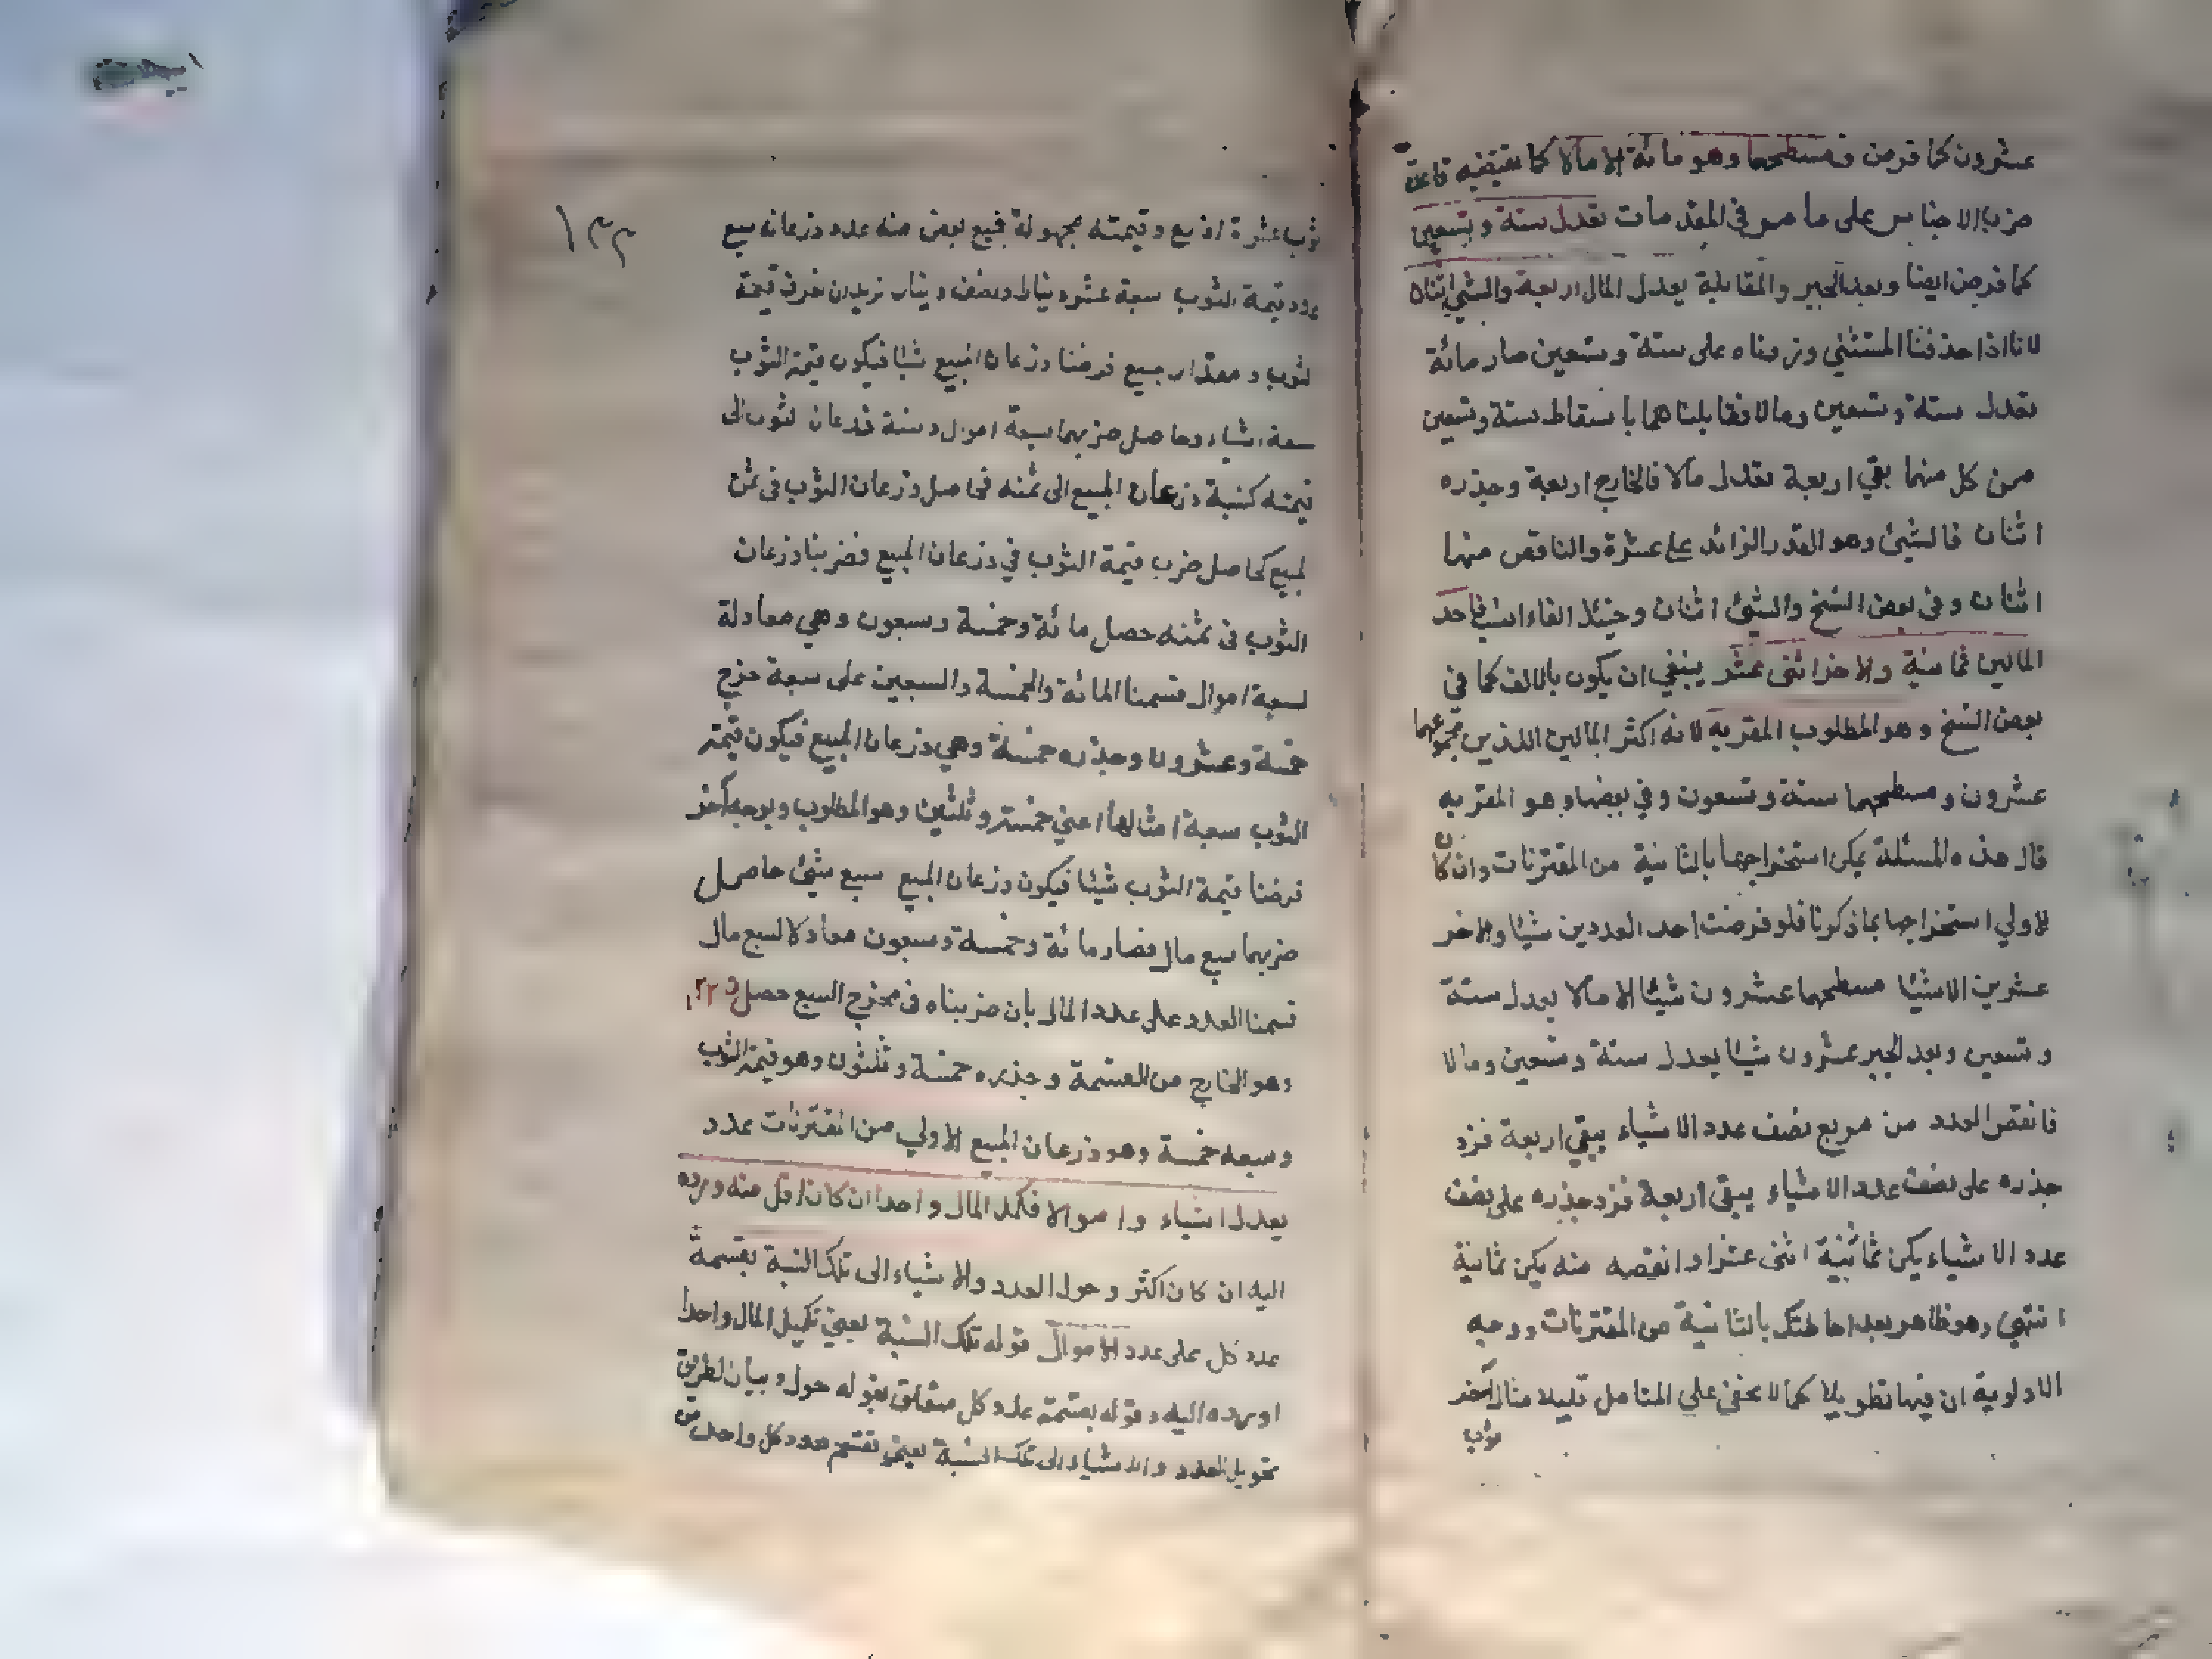 عشرون كما فرض فمسطحهما وهو مائة الا مالا كما تقتضيه قاعدة
ضرب الاجناس على ما مر في المقدمات تعدل ستة وتسعين
كما فرض ايضا وبعد الجبر والمقابلة يعدل المال اربعة والشئ اثنان
لانا اذا حذفنا المستثنى وزدناه على ستة وتسعين صار مائة
تعدل ستة وتسعين ومالا فقابلناهما باسقاط ستة وتسعين
من كل منهما بقي اربعة تعدل مالا فالخارج اربعة وجذره
اثنان فالشئ وهو القدر الزائد على عشرة والناقص منها
اثنان وفي بعض النسخ والشئ اثنان وحينئذ الفاء انسب فاحد
المالين ثمانية والاخر اثنى عشر ينبغي ان يكون بالالف كما في
بعض النسخ وهو المطلوب المقر به لانه اكثر المالين اللذين مجموعهما
عشرون ومسطحهما ستة وتسعون وفي بعضها وهو المقر به
قال هذه المسئلة يمكن استخراجها بالثانية من المقترنات وان كان
الاولي استخراجها بما ذكرنا فلو فرضت احد العددين شيئا والاخر
عشرين الا شيئا مسطحهما عشرون شيئا الا مالا يعدل ستة
وتسعين وبعد الجبر عشرون شيئا يعدل ستة وتسعين ومالا
فانقص العدد من مربع نصف عدد الاشياء يبقي اربعة فزد
جذره على نصف عدد الاشياء يبقى اربعة فزد جذره على نصف
عدد الاشياء يكن ثمانية اثنى عشر او انقصه منه يكن ثمانية
انتهى وهو ظاهر بعد احاطتك بالثانية من المقترنات ووجه
الاولوية ان فيها تطويلا كما لا يخفى علي المتامل قليلا مثال آخر
ثوب
١٣٣
ثوب عشرة اذرع وقيمته مجهولة فبيع بعض منه عدد ذرعانه سبع
عدد قيمة الثوب بسبعة عشر دينارا ونصف دينار نريد ان نعرف قيمة
الثوب ومقدار مبيع فرضنا ذرعان المبيع شيئا فيكون قيمة الثوب
سبعة اشياء وحاصل ضربهما سبعة اموال ونسبة ذرعان الثوب الى
قيمته كنسبة ذرعان المبيع الى ثمنه فحاصل ذرعان الثوب في ثمن
المبيع كحاصل ضرب قيمة الثوب في ذرعان المبيع فضربنا ذرعان
الثوب في ثمنه حصل مائة وخمسة وسبعون وهي معادلة
لسبعة اموال قسمنا المائة والخمسة والسبعين على سبعة خرج
خمسة وعشرون وجذره خمسة وهي ذرعان المبيع فيكون قيمة
الثوب سبعة امثالها اعني خمسة وثلثين وهو المطلوب وبوجه آخر
فرضنا قيمة الثوب شيئا فيكون ذرعان المبيع سبع شئ حاصل
ضربهما سبع مال فصار مائة وخمسة وسبعون معادلا لسبع مال
قسمنا العدد على عدد المال بان ضربناه في مخرج السبع حصل ١٢٢٥
وهو الخارج من القسمة وجذره خمسة وثلثون وهو قيمة الثوب
وسبعه خمسة وهو ذرعان المبيع الاولي من المقترنات عدد
يعدل اشياء واموالا فكمل المال واحدا ان كان اقل منه ورده
اليه ان كان اكثر وحول العدد والاشياء الى تلك النسبة بقسمة
عدد كل على عدد الاموال قوله تلك النسبة يعني تكميل المال واحدا
او رده اليه وقوله بقسمة عدد كل متعلق بقوله حول وبيان لطريق
تحويل العدد والاشياء الى تلك النسبة يعني تقسم عدد كل واحد من